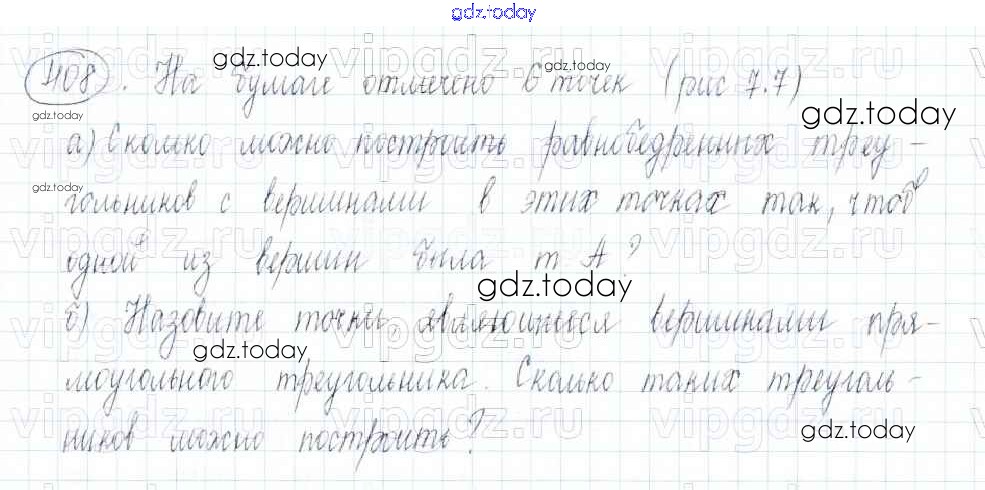 gdz.today
408. На бумаге отмечено 6 точек (рис 7.7)
а) Сколько можно построить равнобедренных треу-
гольников с вершинами в этих точках так, чтоб
одной из вершин была т А?
б) Назовите точки, являющиеся вершинами пря-
моугольного треугольника. Сколько таких треуголь-
ников можно построить?
gdz.today
gdz.today
gdz.today
gdz.today
gdz.today
gdz.today
gdz.today
vipgdz.ru